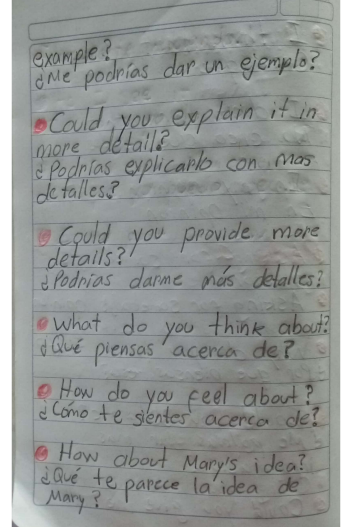 example?
¿Me podrías dar un ejemplo?
Could you explain it in
more detail?
¿Podrías explicarlo con mas
detalles?
Could you provide more
details?
¿Podrias darme más detalles?
What do you think about?
¿Qué piensas acerca de?
How do you feel about?
¿Cómo te sientes acerca de?
How about Mary's idea?
¿Qué te parece la idea de
Mary?